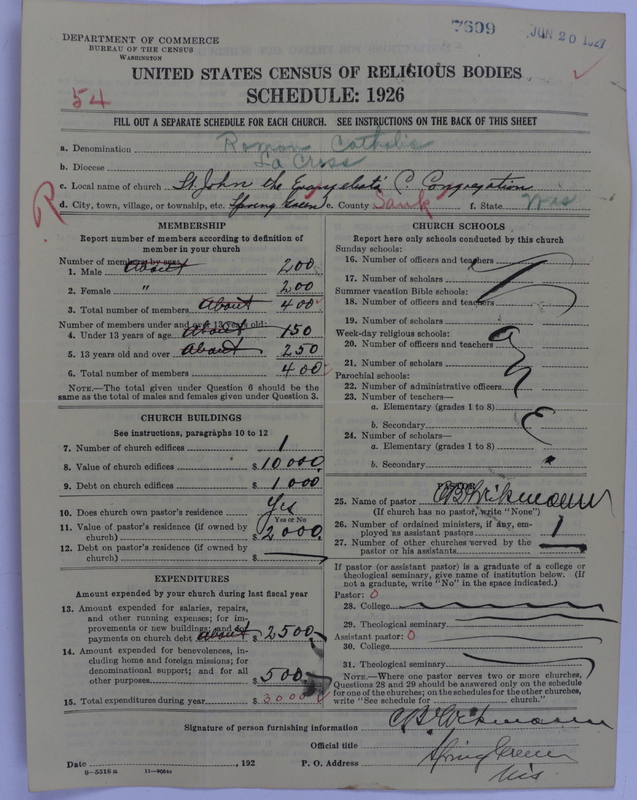 7609
JUN 20 1927
DEPARTMENT OF COMMERCE
BUREAU OF THE CENSUS
WASHINGTON
UNITED STATES CENSUS OF RELIGIOUS BODIES
SCHEDULE: 1926
54
FILL OUT A SEPARATE SCHEDULE FOR EACH CHURCH. SEE INSTRUCTIONS ON THE BACK OF THIS SHEET
a. Denomination Roman Catholic
b. Diocese La Cross
c. Local name of church St. John the Evangelist's C. Congregation
d. City, town, village, or township, etc. Spring Green e. County Sauk f. State Wis
R
MEMBERSHIP
Report number of members according to definition of member in your church
Number of members by sex:
1. Male About 200
2. Female " 200
3. Total number of members About 400
Number of members under and over 13 years old:
4. Under 13 years of age About 150
5. 13 years old and over About 250
6. Total number of members 400
NOTE.—The total given under Question 6 should be the same as the total of males and females given under Question 3.
CHURCH BUILDINGS
See instructions, paragraphs 10 to 12
7. Number of church edifices 1
8. Value of church edifices $ 10000
9. Debt on church edifices $ 1000
10. Does church own pastor's residence Yes
Yes or No
11. Value of pastor's residence (if owned by church) $ 2000
12. Debt on pastor's residence (if owned by church) $
EXPENDITURES
Amount expended by your church during last fiscal year
13. Amount expended for salaries, repairs, and other running expenses; for improvements or new buildings; and for payments on church debt about $ 2500
14. Amount expended for benevolences, including home and foreign missions; for denominational support; and for all other purposes $ 500
15. Total expenditures during year $ 3000
CHURCH SCHOOLS
Report here only schools conducted by this church
Sunday schools:
16. Number of officers and teachers
17. Number of scholars
Summer vacation Bible schools:
18. Number of officers and teachers
19. Number of scholars
Week-day religious schools:
20. Number of officers and teachers
21. Number of scholars
Parochial schools:
22. Number of administrative officers
23. Number of teachers—
a. Elementary (grades 1 to 8)
b. Secondary
24. Number of scholars—
a. Elementary (grades 1 to 8)
b. Secondary
PASTOR
25. Name of pastor
(If church has no pastor, write "None")
26. Number of ordained ministers, if any, employed as assistant pastors 1
27. Number of other churches served by the pastor or his assistants
If pastor (or assistant pastor) is a graduate of a college or theological seminary, give name of institution below. (If not a graduate, write "No" in the space indicated.)
Pastor: 0
28. College
29. Theological seminary
Assistant pastor: 0
30. College
31. Theological seminary
NOTE.—Where one pastor serves two or more churches, Questions 28 and 29 should be answered only on the schedule for one of the churches; on the schedules for the other churches, write "See schedule for church."
Signature of person furnishing information
Official title
Date , 192
P. O. Address Spring Green
Wis.
8—5518a 11—9084a